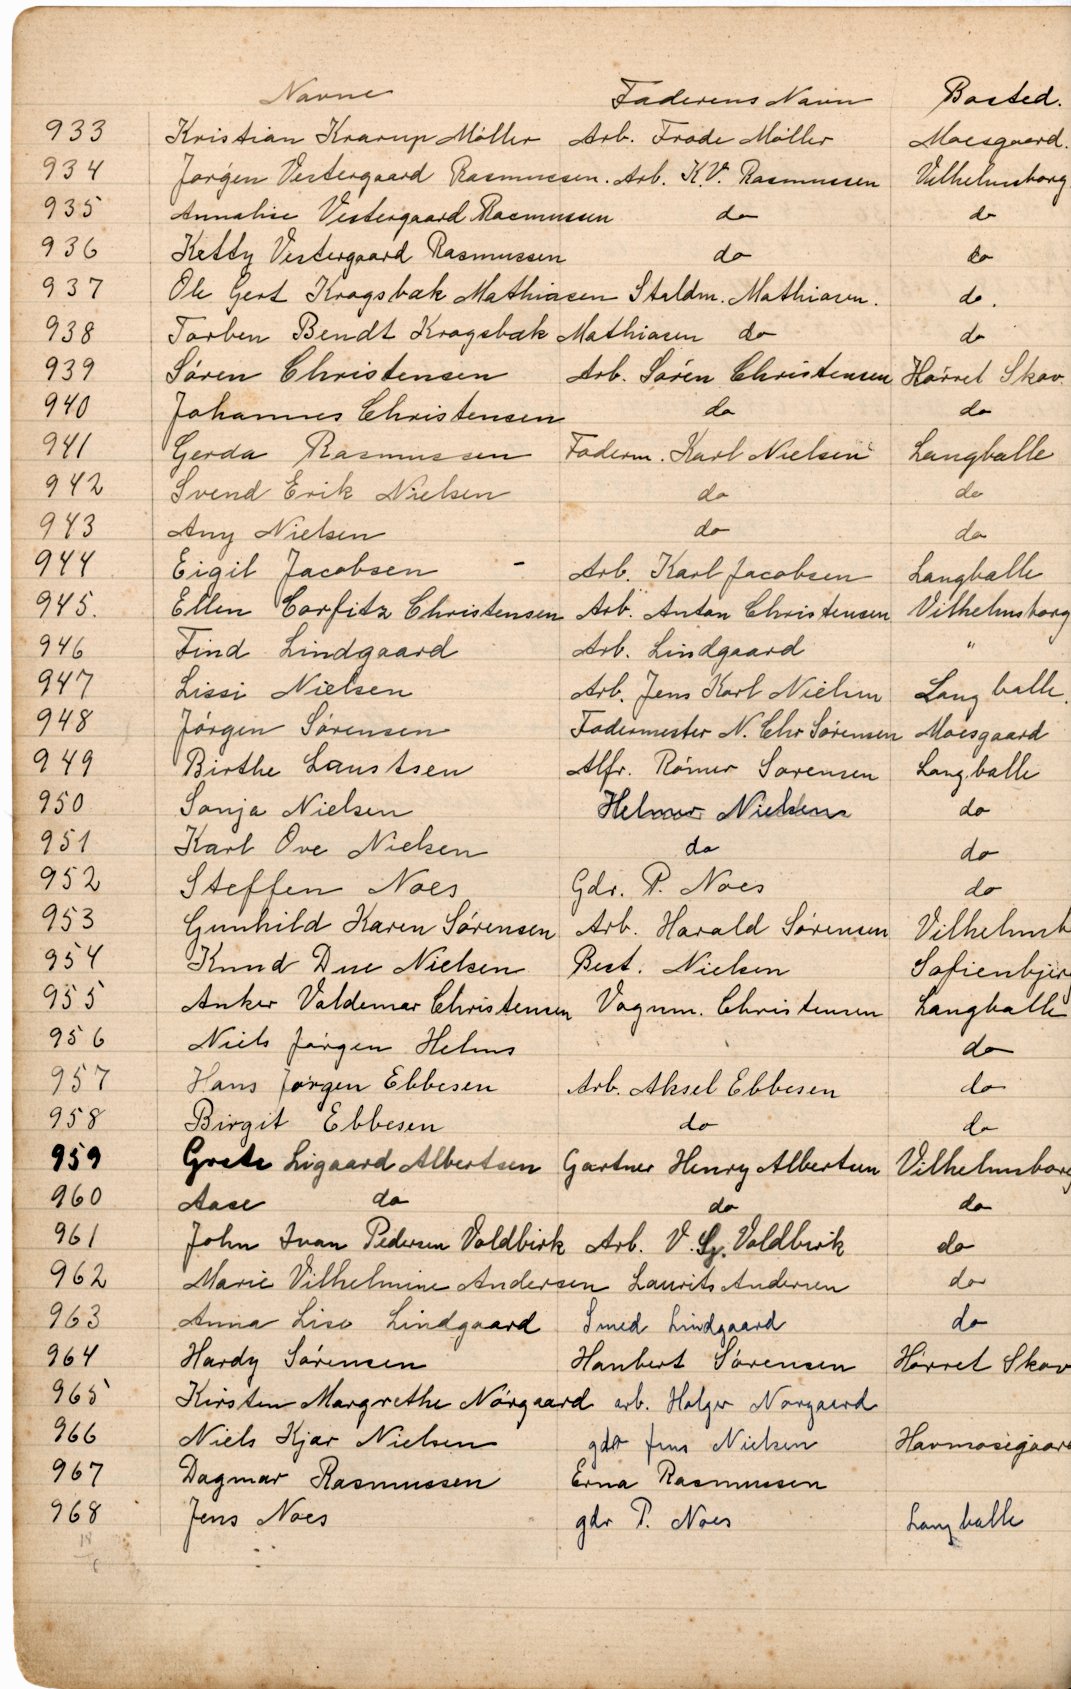 Navne Faderens Navn Bosted.
933 Kristian Krarup Møller Arb. Frode Møller Moesgaard.
934 Jørgen Vestergaard Rasmussen. Arb. K.V. Rasmussen Vilhelmsborg
935 Annalise Vestergaard Rasmussen do do
936 Ketty Vestergaard Rasmussen do do
937 Ole Gert Krogsbæk Mathiasen Staldm. Mathiasen. do.
938 Torben Bendt Krogsbæk Mathiasen do do
939 Søren Christensen Arb. Søren Christensen Hørret Skov
940 Johannes Christensen do do
941 Gerda Rasmussen Foderm. Karl Nielsen Langballe
942 Svend Erik Nielsen do do
943 Any Nielsen do do
944 Eigil Jacobsen - Arb. Karl Jacobsen Langballe
945. Ellen Corfitz Christensen Arb. Anton Christensen Vilhelmsborg
946 Find Lindgaard Arb. Lindgaard "
947 Lissi Nielsen Arb. Jens Karl Nielsen Langballe.
948 Jørgen Sørensen Fodermester N. Chr Sørensen Moesgaard
949 Birthe Laustsen Alfr. Rømer Sørensen Langballe
950 Sonja Nielsen Helmer Nielsen do
951 Karl Ove Nielsen do do
952 Steffen Noes Gdr. P. Noes do
953 Gunhild Karen Sørensen Arb. Harald Sørensen Vilhelmsb
954 Knud Due Nielsen Best. Nielsen Sofienbjer
955 Anker Valdemar Christensen Vognm. Christensen Langballe
956 Niels Jørgen Helms do
957 Hans Jørgen Ebbesen Arb. Aksel Ebbesen do
958 Birgit Ebbesen do do
959 Grete Ligaard Albertsen Gartner Henry Albertsen Vilhelmsborg
960 Aase do do do
961 John Ivan Pedersen Voldbirk Arb. V. Voldbirk do
962 Marie Vilhelmine Andersen Laurits Andersen do
963 Anna Lise Lindgaard Smed Lindgaard do
964 Hardy Sørensen Hanbert Sørensen Hørret Skov
965 Kirsten Margrethe Nørgaard arb. Holger Nørgaard
966 Niels Kjær Nielsen gdr Jens Nielsen Havmosegaard
967 Dagmar Rasmussen Erna Rasmussen
968 Jens Noes gdr P. Noes Langballe